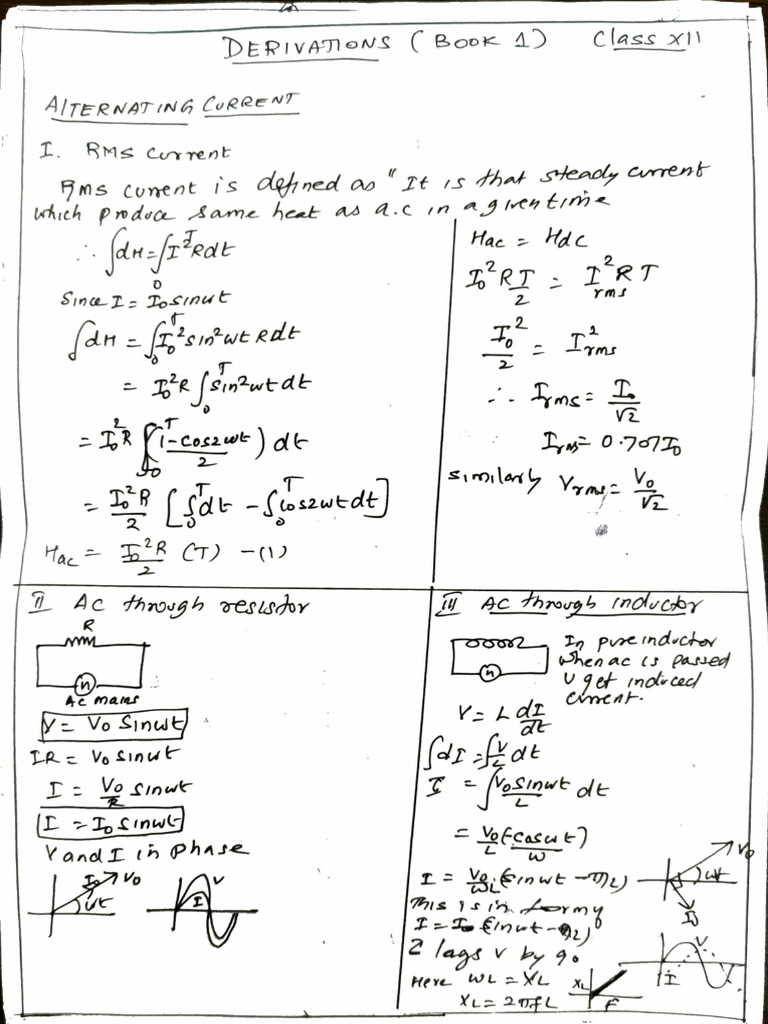 DERIVATIONS (BOOK 1) Class XII
ALTERNATING CURRENT
I. RMS Current
Rms current is defined as "It is that steady current
which produce same heat as a.c in a given time
∴ ∫dH = ∫₀ᵀ I²Rdt
Since I = I₀ sinωt
∫dH = ∫₀ᵀ I₀² sin²ωt Rdt
= I₀²R ∫₀ᵀ sin²ωt dt
= I₀²R ∫₀ᵀ (1-cos2ωt)/2 dt
= I₀²R/2 [∫₀ᵀ dt - ∫₀ᵀ cos2ωt dt]
Hac = I₀²R/2 (T) -(1)
Hac = Hdc
I₀²R T/2 = I²rms R T
I₀²/2 = I²rms
∴ Irms = I₀/√2
Irms = 0.707I₀
similarly Vrms = V₀/√2
II AC through resistor
R
AC mains
V = V₀ Sinωt
IR = V₀ sinωt
I = V₀/R sinωt
I = I₀ sinωt
V and I in phase
I₀ V₀
ωt
V
I
III AC through inductor
In pure inductor
when ac is passed
U get induced
current.
V = L dI/dt
∫dI = ∫V/L dt
I = ∫V₀sinωt/L dt
= V₀/L (-cosωt)/ω
I = V₀/ωL (sinωt - π/2)
This is in form of
I = I₀ (sinωt - π/2)
I lags V by 90
Here ωL = XL
XL = 2πfL
V₀
ωt
I₀
V
I
XL
F